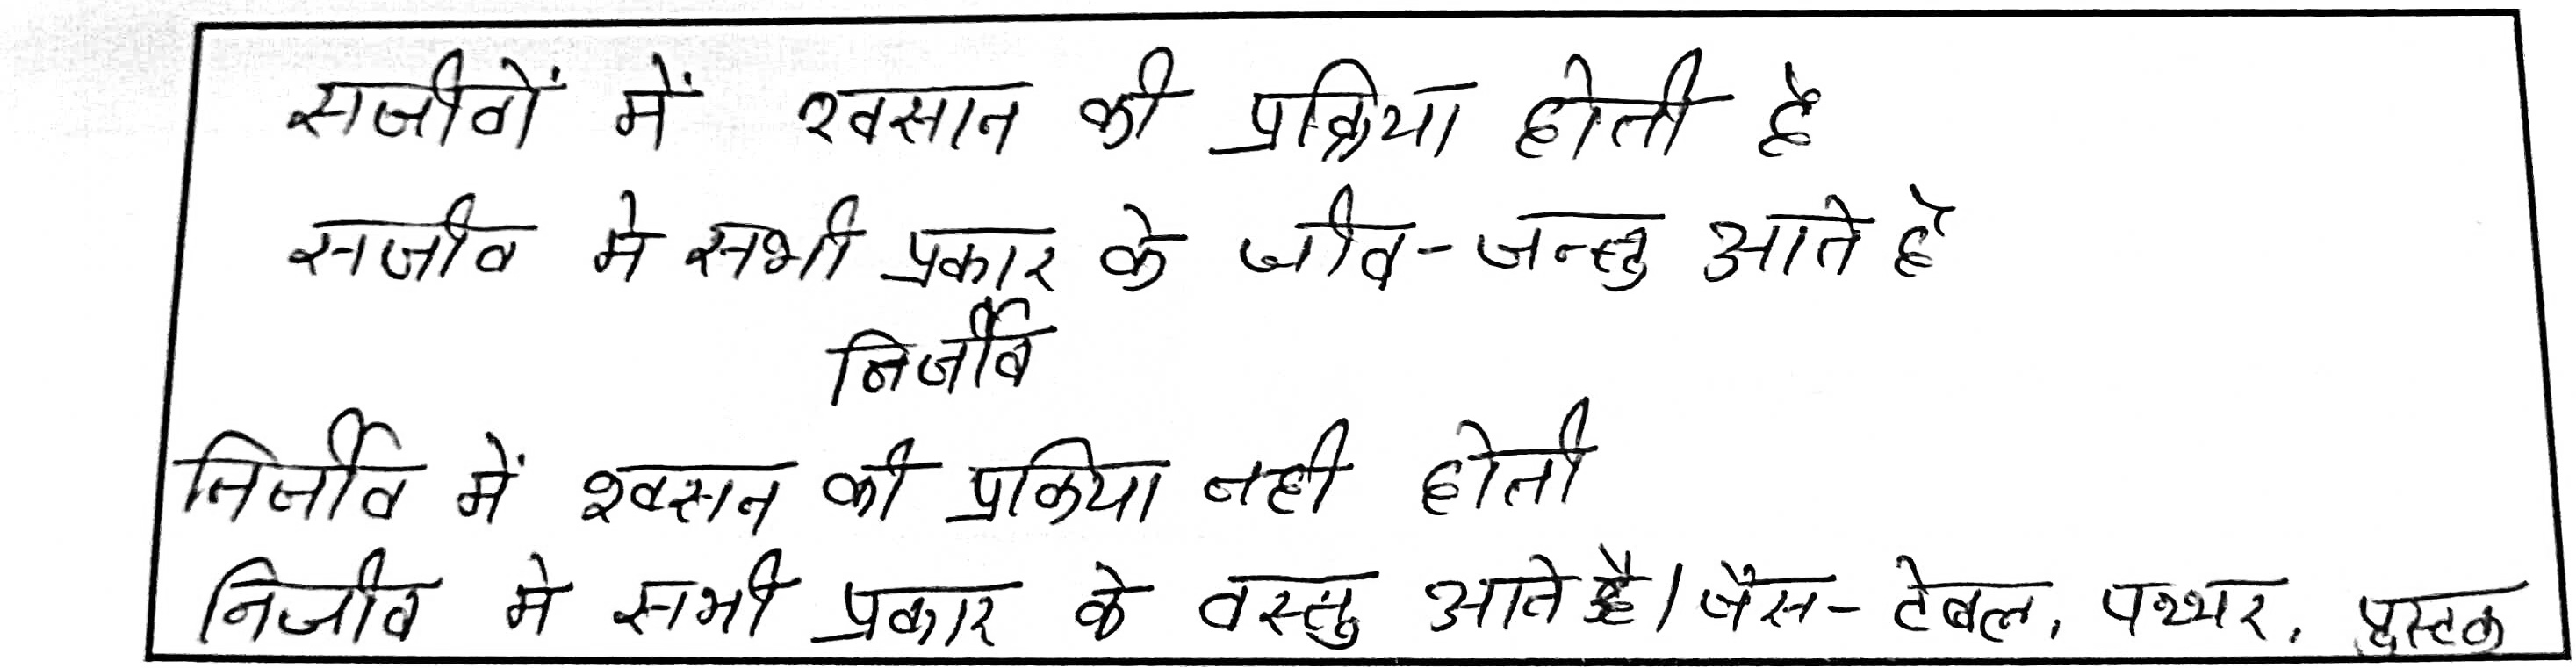 सजीवों में श्वसान की प्रक्रिया होती है
सजीव मे सभी प्रकार के जीव-जन्तु आते है
निर्जीव
निर्जीव में श्वसन की प्रकिया नही होती
निर्जीव मे सभी प्रकार के वस्तु आते है। जैस- टेबल, पथ्थर, पुस्तक